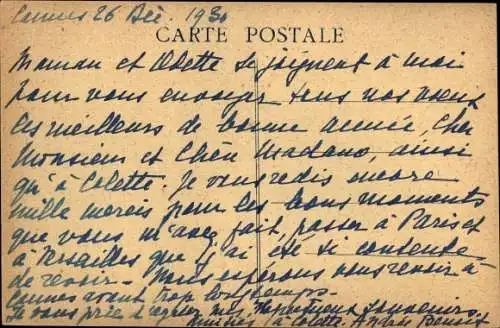 Cannes 26 Déc. 1930
CARTE POSTALE
Maman et Odette se joignent à moi
pour vous envoyer tous nos voeux
les meilleurs de bonne année, Cher
Monsieur et Chère Madame, ainsi
qu'à Colette. Je vous redis encore
mille mercis pour les bons moments
que vous m'avez fait passer à Paris et
à Versailles que j'ai été si contente
de revoir. Nous espérons vous revoir à
Cannes avant trop longtemps.
Je vous prie d'agréer mes souvenirs.
Amitiés à Colette